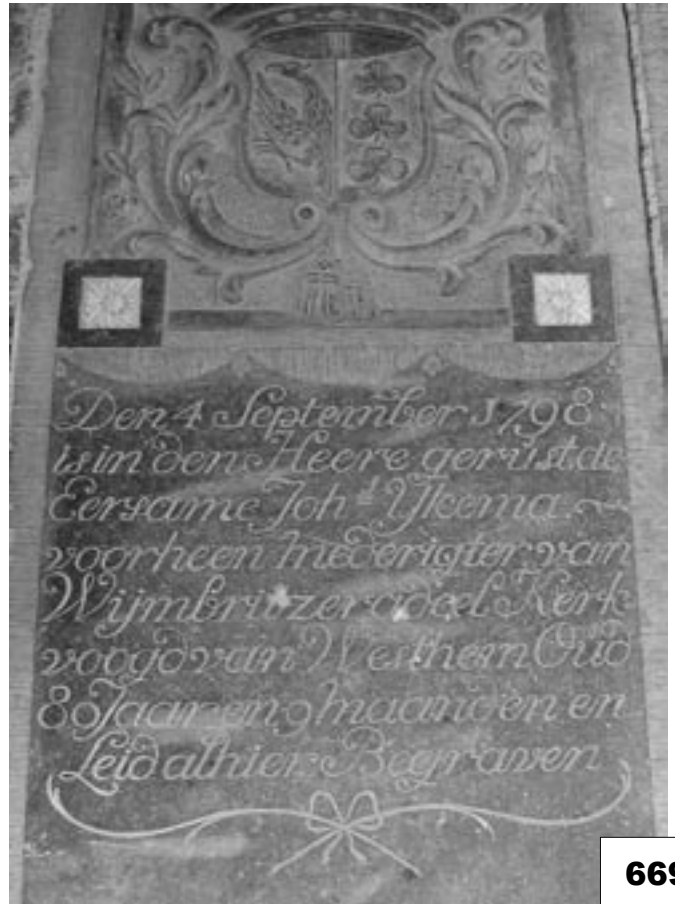 Den 4 September 1798
is in den Heere gerust de
Eersame Joh.s Ykema
voorheen mederigter van
Wijmbritzeradeel Kerk
voogd van Westhem Oud
80 Jaar en 9 maanden en
Leid alhier Begraven
669